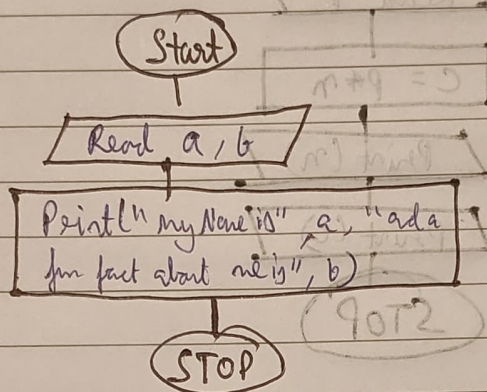 Start
Read a, b
Print(" my Name is", a, "and a
fun fact about me is", b)
STOP